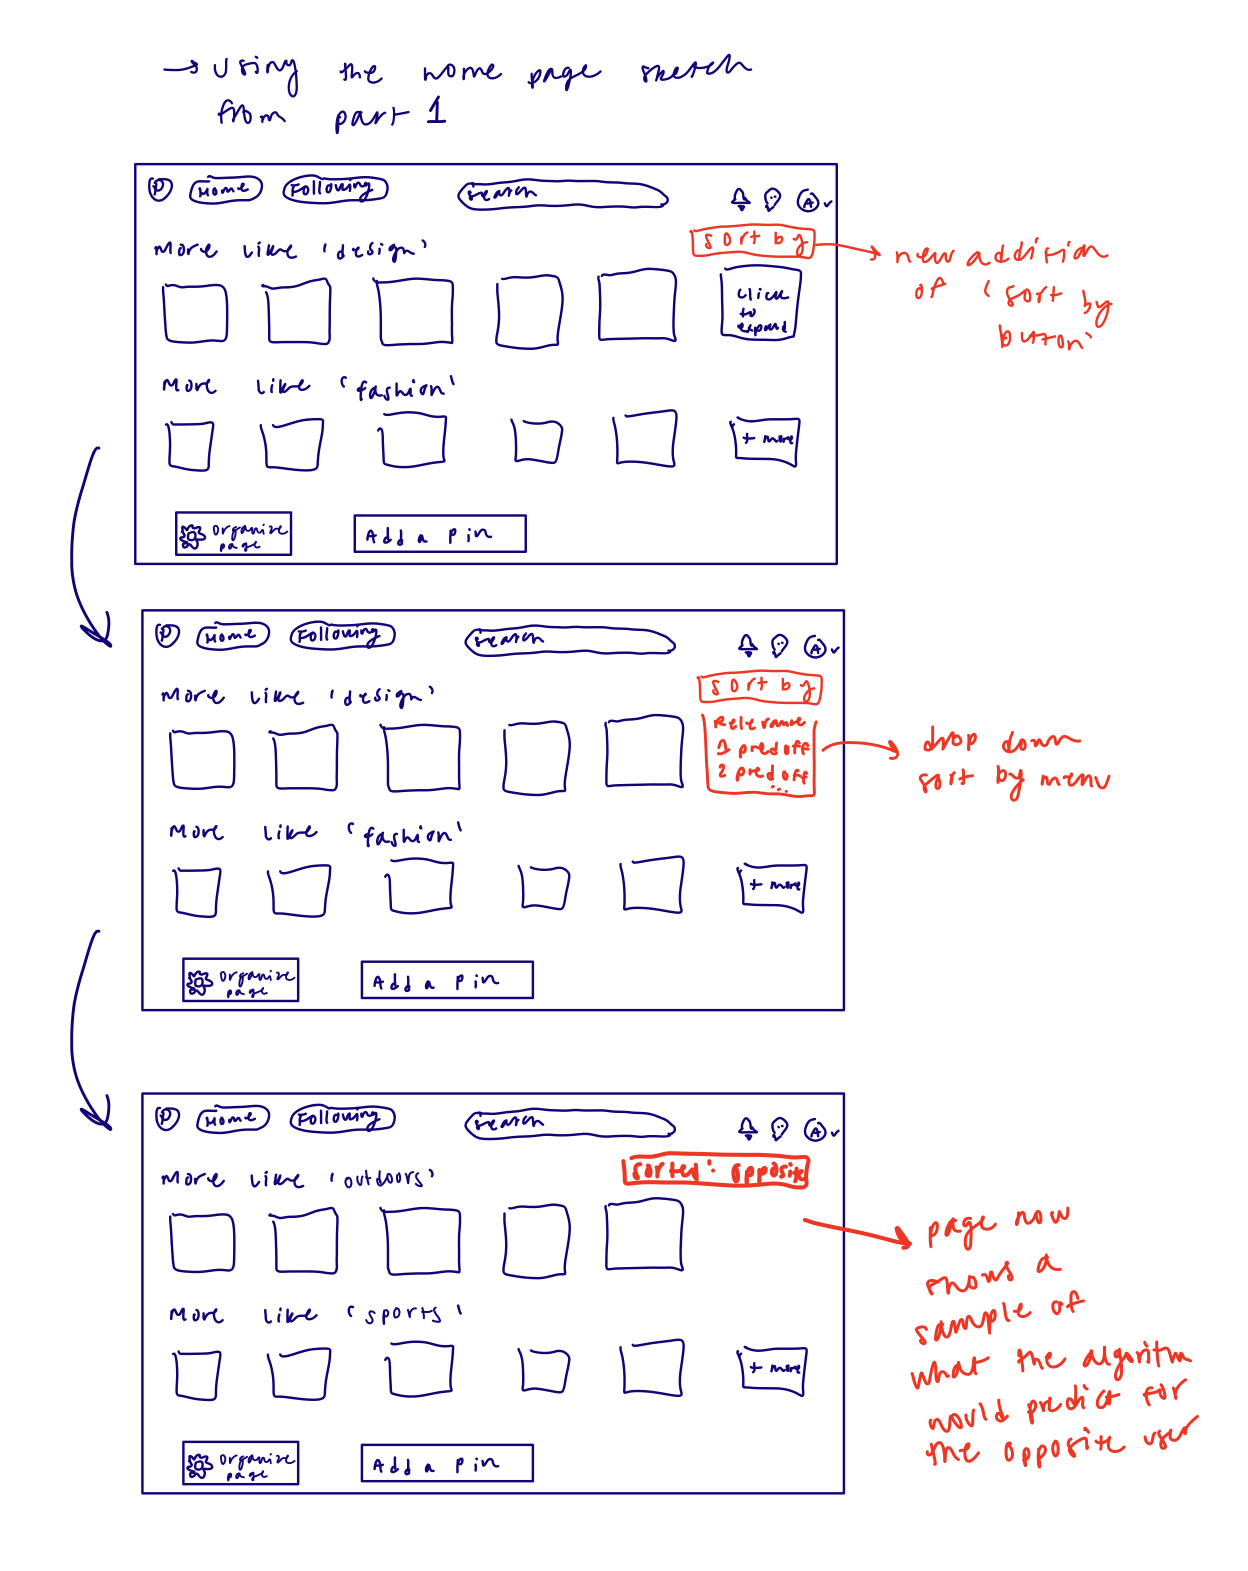 → using the home page sketch
from part 1
P Home Following search A
More like 'design'
sort by
→ new addition
of 'sort by
button'
click
to
expand
More like 'fashion'
+ more
organize
page
Add a pin
P Home Following search A
More like 'design'
sort by
Relevance
1 pred off
2 pred off
...
→ drop down
sort by menu
More like 'fashion'
+ more
organize
page
Add a pin
P Home Following search A
More like 'outdoors'
sorted: opposite
→ page now
shows a
sample of
what the algorithm
would predict for
the opposite user
More like 'sports'
+ more
organize
page
Add a pin